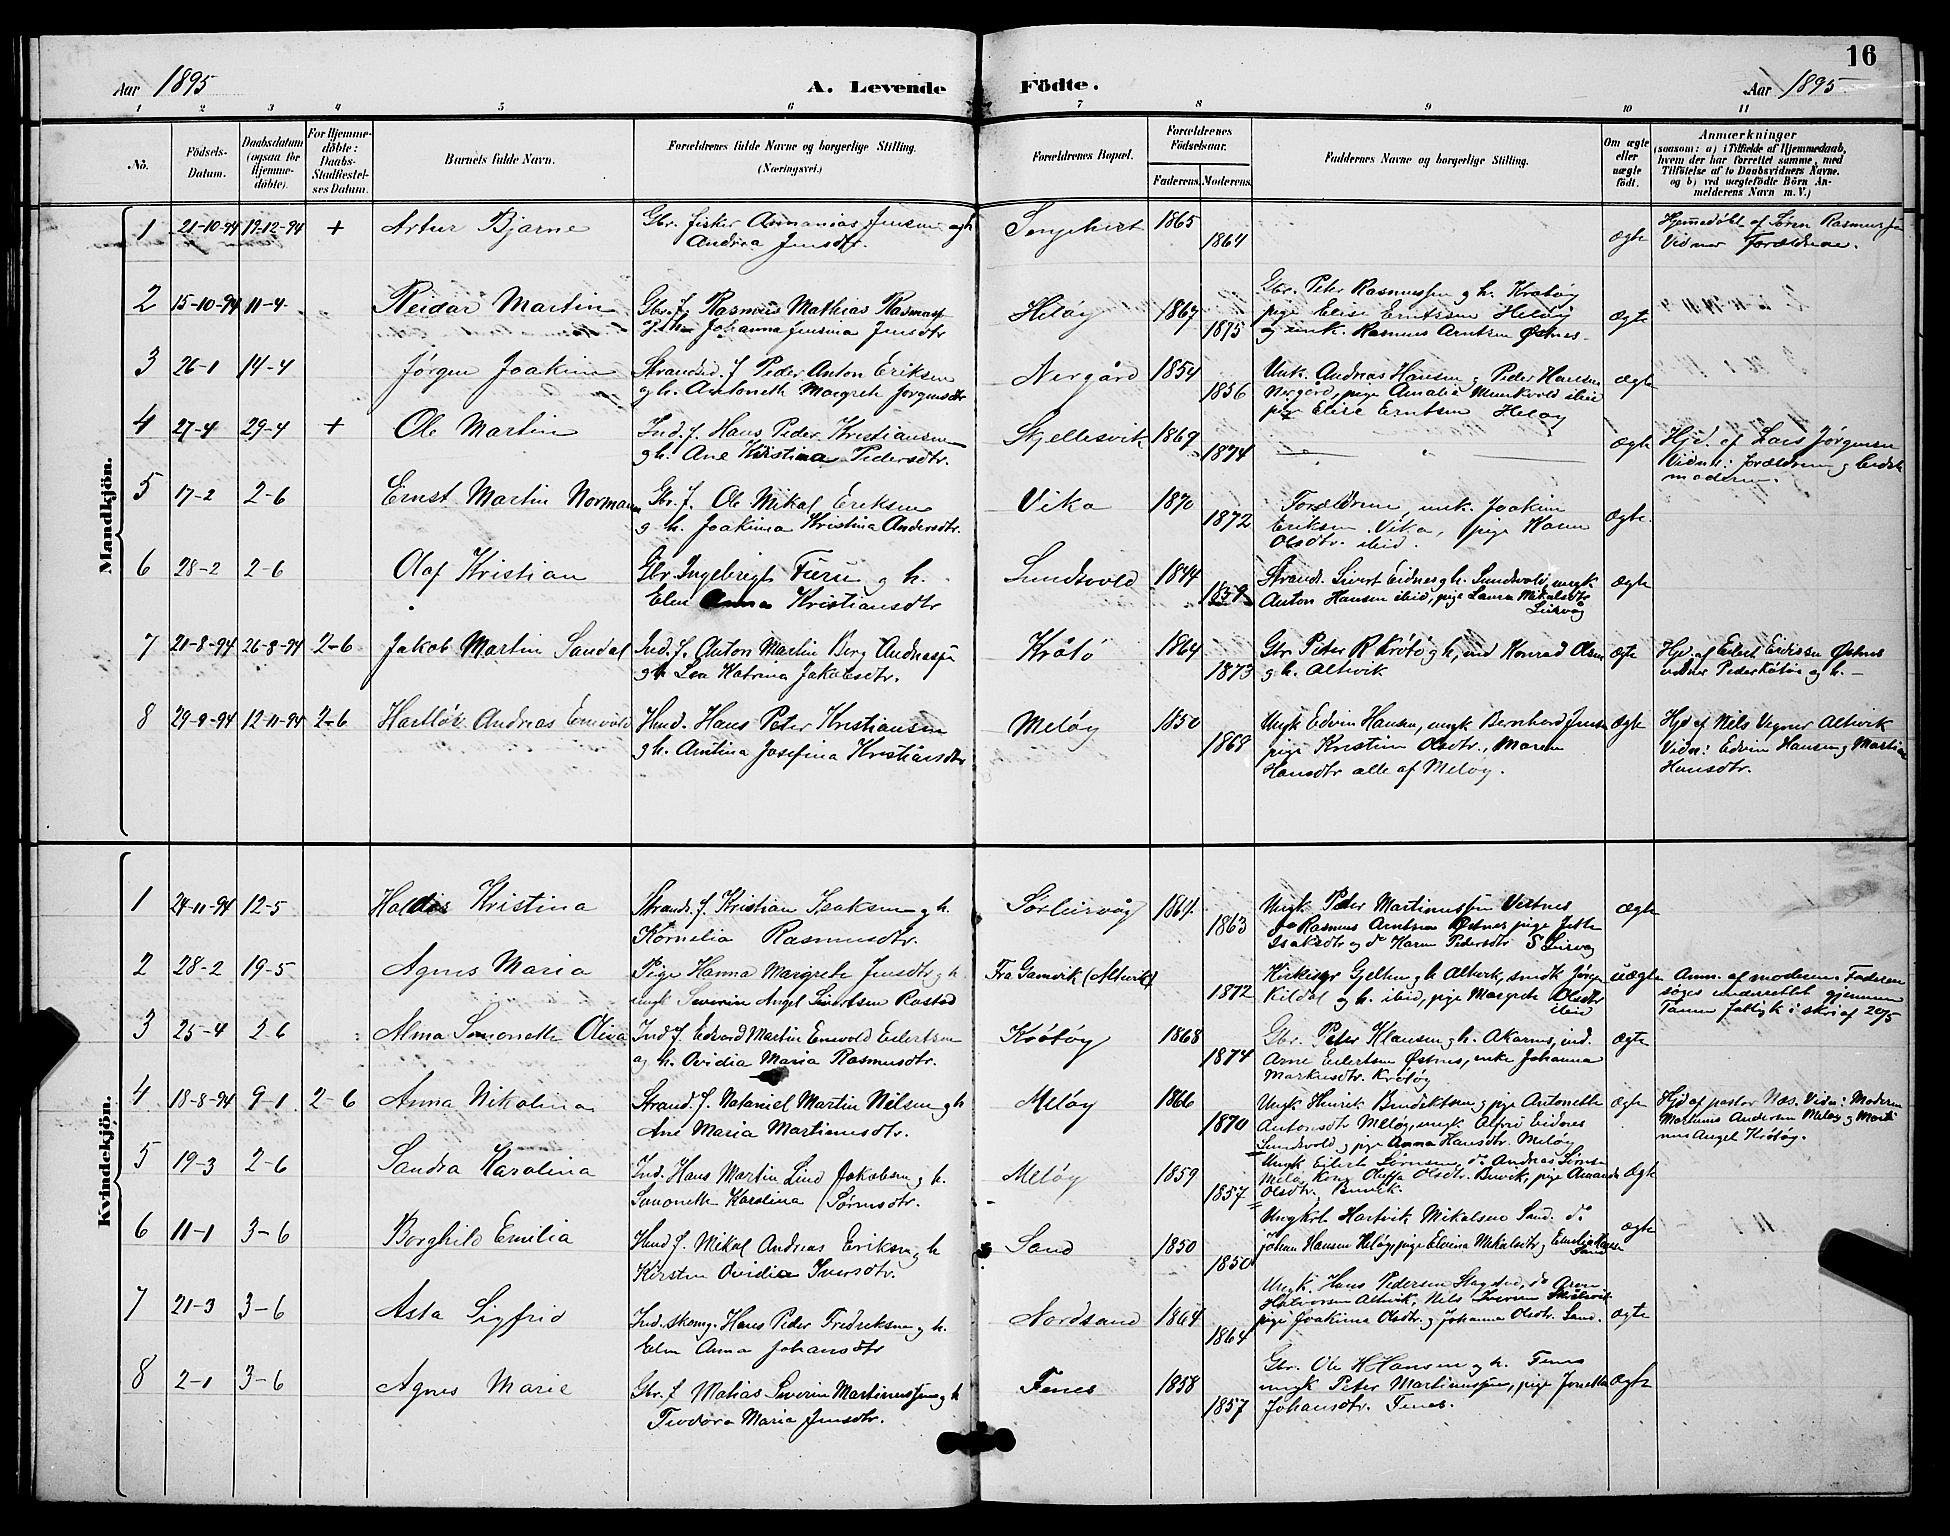 16
Aar 1895 A. Levende Födte. Aar 1895
1 2 3 4 5 6 7 8 9 10 11
No. Födsels-Datum. Daabsdatum (ogsaa for Hjemme-döbte). For Hjemme-döbte: Daabs-Stadfæstel-ses Datum. Barnets fulde Navn. Forældrenes fulde Navne og borgerlige Stilling. (Næringsvei.) Forældrenes Bopæl. Forældrenes Födselsaar. Faderens. Moderens. Faddernes Navne og borgerlige Stilling. Om ægte eller uægte födt. Anmærkninger (saasom: a) i Tilfælde af Hjemmedaab, hvem der har forrettet samme, med Tilföielse af to Daabsvidners Navne, og b) ved uægtefödte Börn An-melderens Navn m. V.)
Mandkjön.
1 21-10-94 17-12-94 + Artur Bjarne Gbr. fisker Annanias Jensen og h. 1865 Hjemmedöbt af Sören Rasmussen
Andrea Jensdtr. 1864 ægte Vidner Forældrene.
2 15-10-94 11-4 Reidar Martin Gbr. f. Rasmus Mathias Rasmuss Heløy 1867 Gbr. Peter Rasmussen g h. Krøtøy
g h. Johanna Jensdtr 1875 pige Elise Erntsen Heløy ægte
og unk. Rasmus Arntsen Østnes.
3 26-1 14-4 Jørgen Joakim Strands. f Peder Anton Eriksen Nergård 1854 Unk. Andreas Hansen g Peder Hansen
g h. Antoneth Margrete Jørgensdtr 1856 Nergård, pige Amalie Munkvold ibid ægte
pige Elise Erntsen Heløy
4 27-4 29-4 + Ole Martin Ind. f. Hans Peder Kristiansen Skjellesvik 1869 Hjd. af Lars Jørgensen
g h. Ane Kristina Pedersdtr. 1874 ægte Vidner: forældrene g bedste
moderen.
5 17-2 2-6 Ernst Martin Normann Gbr. f. Ole Mikal Eriksen Vika 1870 Forældrene, unk. Joakim
g h. Joakima Kristina Andersdtr. 1872 Eriksen Vika, pige Hanna ægte
Olsdtr. ibid.
6 28-2 2-6 Olaf Kristian Gbr. Ingebrigt Furu g h. Sundsvold 1844 Strands. Sivert Eidnes g h. Sundvold, ungk. ægte
Elen Anna Kristiansdtr 1859 Anton Hansen ibid, pige Laura Mikalsdtr
Leirvåg
7 21-8-94 26-8-94 2-6 Jakob Martin Sandal Ind. f. Anton Martin Berg Andreasen Krøtø 1864 Gbr Peter R Krøtø g h, ind Konrad Olsen ægte Hjd. af Eilert Erikssen Østnes
g h Lea Katrina Jakobsdtr. 1873 g h. Altvik vidner Peder Krøtø og h.
8 29-9-94 12-11-94 2-6 Andreas Emvold Husd. Hans Peter Kristiansen Meløy 1850 Ungk Edvin Hansen, ungk Bernhard Jensen ægte Hjd af Nils Vegner Altvik
g h. Arntina Josefina Kristiansdtr 1868 pige Kristine Olsdtr, Maren Vidn: Edvin Hansen g Martine
Hansdtr alle af Meløy. Hansdtr.
Kvindekjön.
1 24-11-94 12-5 Haldis Kristina Strands. f. Kristian Isaksen g h. Sørleirvåg Ungk Peter Martinussen Vitnes ægte
Kornelia Rasmusdtr. 1863 do Rasmus Arntsen Østnes pige Jette
Isaksdtr og do Karen Pedersdtr S Leirvåg
2 28-2 19-5 Agnes Maria Pige Hanna Margrete Jensdtr g Fra Gamvik (Altvik) Kirkesgr Gjelten g h Altvik, smedk Jørgen uægte Anm. af moderen. Faderen
ungk Severin Angel Sivertsen Rastad 1872 Kildal og h. ibid, pige Margrete Olsdtr søges underrettet gjennem
ibid Tanen fattigk i skr. af 20/5
3 25-4 2-6 Alma Simonette Oliva Ind f. Edvard Martin Emvold Eilertsen Krøtøy 1868 Gbr. Peter Klausen g h. Akarnes, ind. ægte
og h. Ovidia Maria Rasmusdtr. 1874 Arne Eilertsen Østnes, enke Johanna
Markusdtr. Krøtøy
4 18-8-94 9-1 2-6 Anna Nikolina Strand. f. Nataniel Martin Nilsen g h Meløy 1866 Ungk Henrik Bendiktsen g pige Antonette ægte Hjd af pastor Næs. Vidn: Moderen
Ane Maria Martinusdtr. 1870 Antonsdtr Meløy, ungk Alfred Eidnes Martinus Andersen Meløy g Marti
Sundsvold g pige Anna Hansdtr. Meløy nus Angel Krøtøy.
5 19-3 2-6 Sandra Karolina Ind. Hans Martin Lind Jakobsen g h. Meløy 1859 Ungk Eilert Sørensen, do Andreas Sørensen ægte
Simonette Karolina Sørensdtr. 1857 Meløy, Kone Oluffa Olsdtr. Buvik, pige Amanda
Olsdtr. Buvik.
6 11-1 3-6 Borghild Emilia Husd f. Mikal Andreas Eriksen g h Sand 1850 Ungkrl Hartvik Mikalsen Sand. do ægte
Kirsten Ovidia Iversdtr. 1850 Johan Hansen Heløy, pige Elvina Mikalsdtr g Emelie Hansen
Sand
7 21-3 3-6 Asta Sigfrid Ind. skomg. Hans Peder Fredriksen g h. Nordsand 1864 Ungk. Hans Pedersen Slagstad, do Aron
Elen Anna Johansdtr 1864 Halvorsen Altvik, Nils Iversen Skålsvik ægte
pige Joakima Olsdtr. g Johanna Olsdtr. Sand.
8 2-1 3-6 Agnes Marie Gbr. f Matias Severin Martinussen g h Fenes 1858 Gbr. Ole H Hansen g h. Fenes
Teodora Maria Jensdtr. 1857 ungk Peter Martinussen, pige Jonetta ægte
Johansdtr. Fenes.